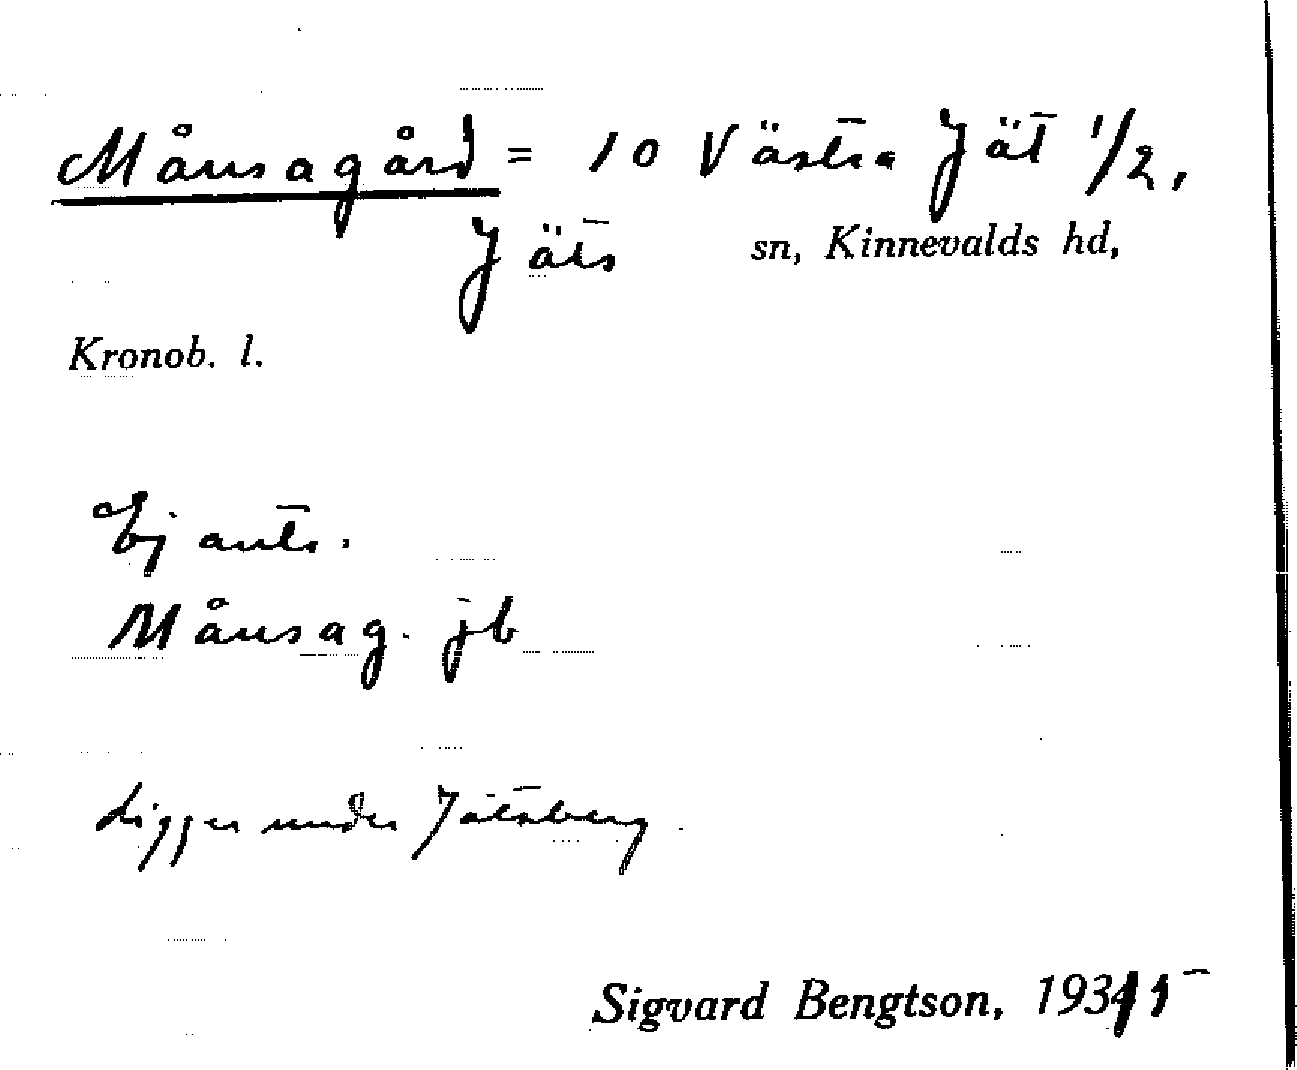 Månsagård = 10 Västra Jät 1/2,
Jäts sn, Kinnevalds hd,
Kronob. l.
Ej ants.
Månsag. jb
Ligger under Jätsberg.
Sigvard Bengtson,